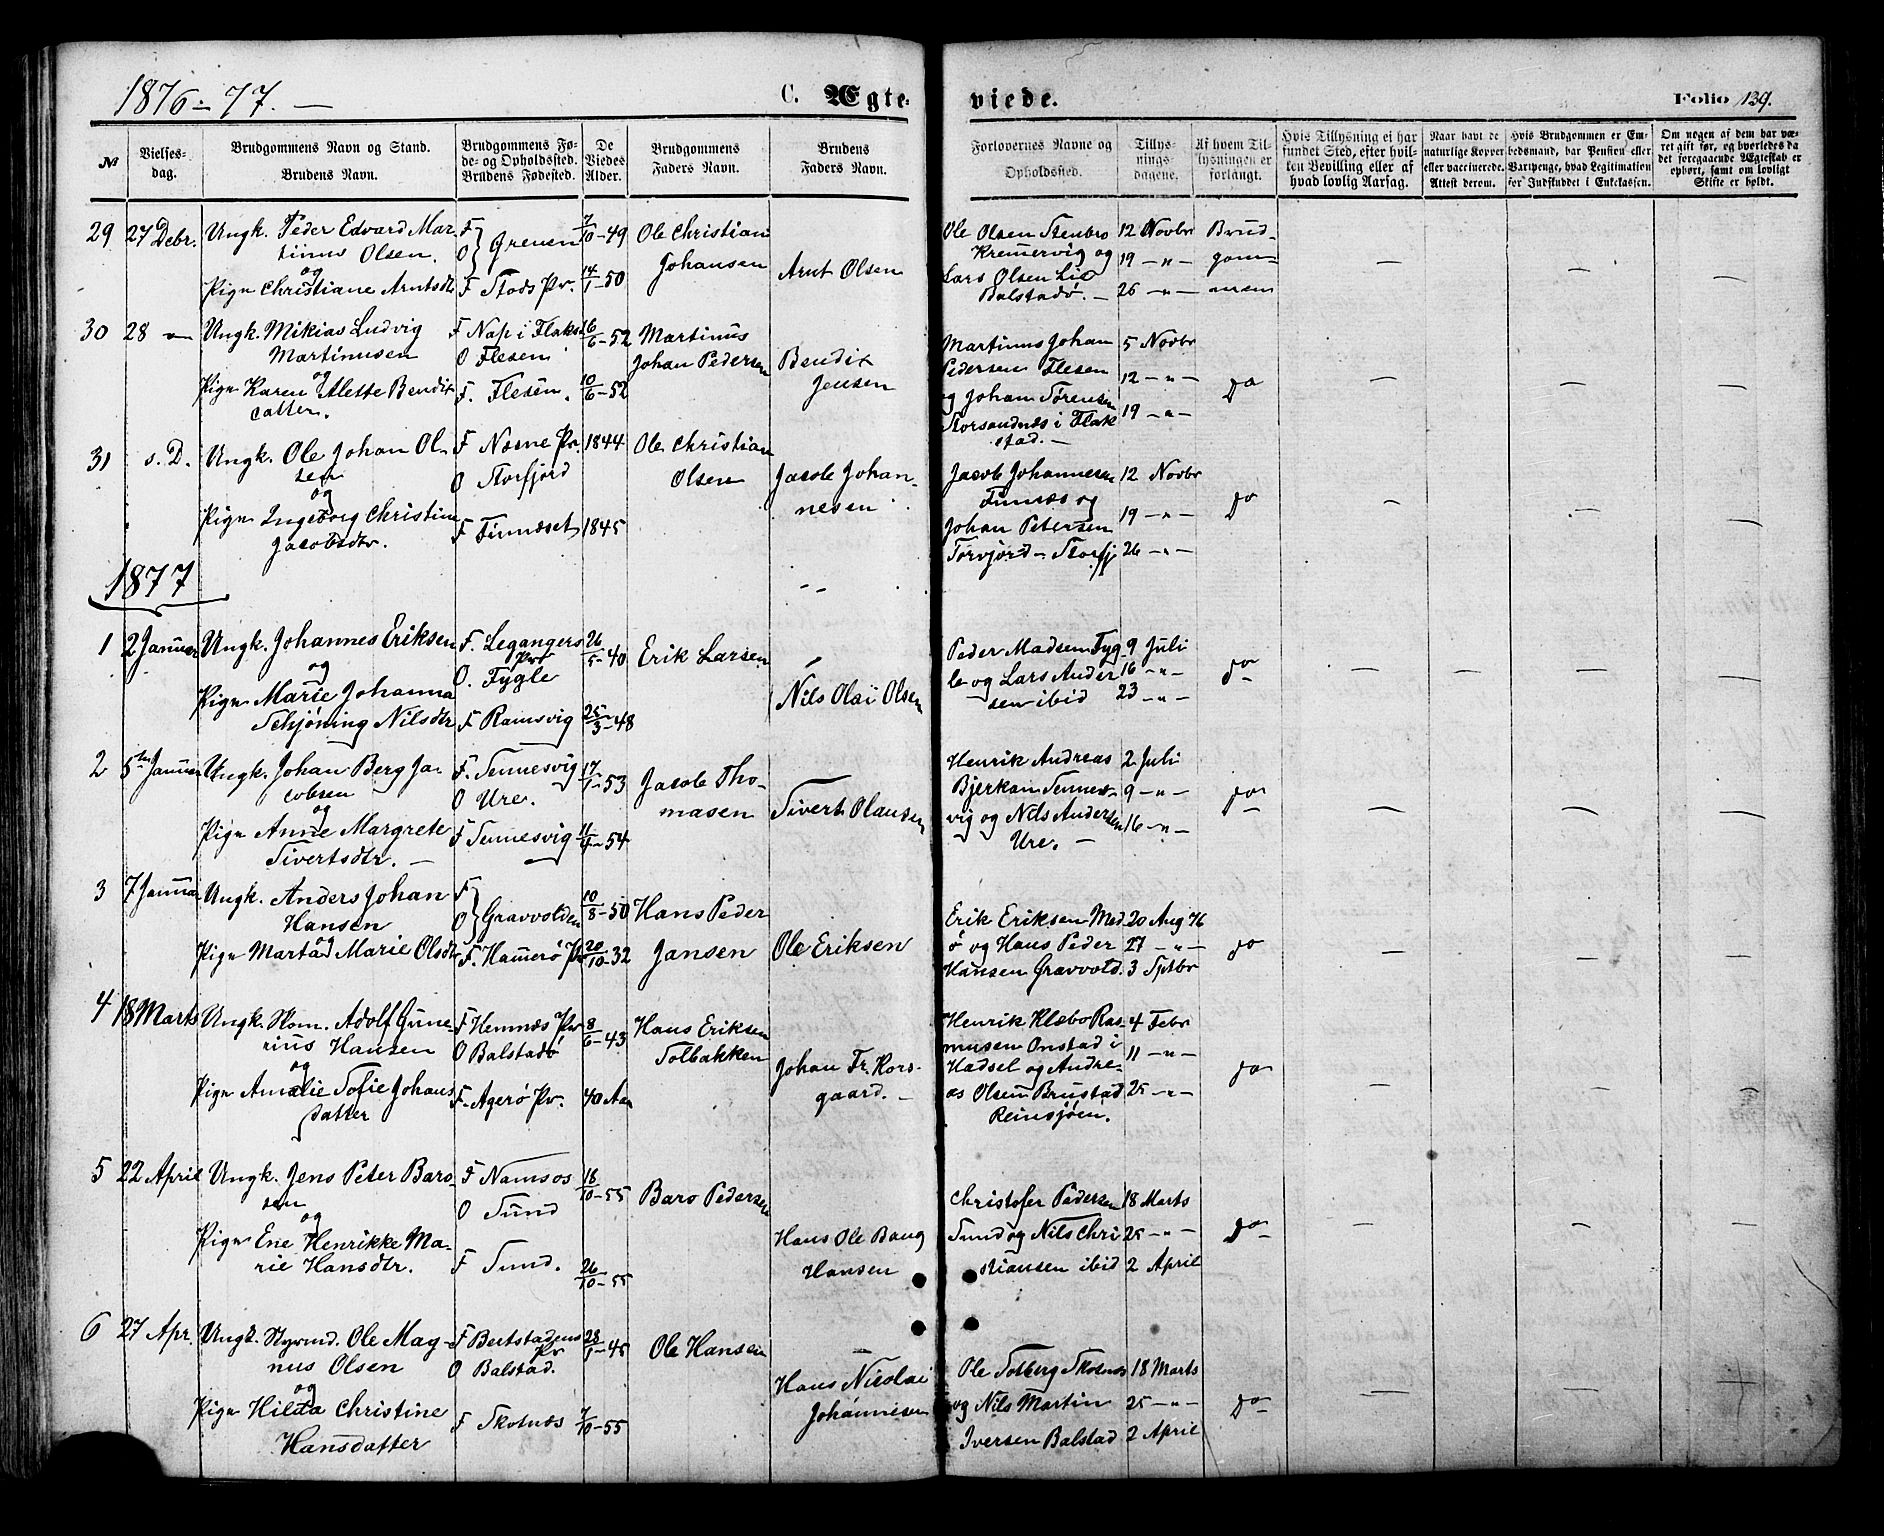 1876-77. —
C. Ægteviede.
Folio 139.
№
Vielsesdag.
Brudgommens Navn og Stand.
Brudens Navn.
Brudgommens Føde- og Opholdssted.
Brudens Fødested.
De Viedes Alder.
Brudgommens Faders Navn.
Brudens Faders Navn.
Forlovernes Navne og Opholdssted.
Tillysningsdagene.
Af hvem Tillysningen er forlangt.
Hvis Tillysning ei har fundet Sted, efter hvilken Bevilling eller af hvad lovlig Aarsag.
Naar havt de naturlige Kopper eller vaccinerede. Attest derom.
Hvis Brudgommen er Embedsmand, har Pension eller Vartpenge, hvad Legitimation for Indskuddet i Enkekassen.
Om nogen af dem har været gift før, og hvorledes da det foregaaende Ægteskab er ophørt, samt om lovligt Skifte er holdt.
29 27 Debr. Ungk. Peder Edvard Martinus Olsen.
og
Pign Christiane Arntsdtr
F O } Grenen
F Stods Pr.
7/10-49
14/1-50
Ole Christian Johansen
Arnt Olsen
Ole Olsen Stenbro Kremervig og Lars Olsen Lie Balstadø. —
12 Novbr
19 -"-
26 -"-
Brudgommen
30 28 -"- Ungk. Mikias Ludvig Martinusen
og
Pign Karen Alette Bendixdatter.
F Nap i Flakst
O Flesen
F. Flesen.
16/6-52
10/6-52
Martinus Johan Pedersen
Bendix Jensen
Martinus Johan Pedersen Flesen og Johan Sørensen Storsandnæs i Flakstad. —
5 Novbr
12 -"-
19 -"-
do
31 s. D. Ungk. Ole Johan Olsen
og
Pign Ingeborg Christine Jacobsdtr.
F Næsne Pr.
O Storfjord
F Finnæset
1844
1845
Ole Christian Olsen
Jacob Johannesen
Jacob Johannesen Finnæs og Johan Petersen Torvjord - Storfj
12 Novbr
19 -"-
26 -"-
do
1877
1 2 Januar Ungk. Johannes Eriksen
og
Pign Marie Johanna Schjøning Nilsdtr
F. Legangers Pr
O. Fygle
F Ramsvig
26/5-40
25/3-48
Erik Larsen
Nils Olai Olsen
Peder Madsen Fygle og Lars Andersen ibid
9 Juli
16 -"-
23 -"-
do
2 5te Januar Ungk. Johan Berg Jacobsen
og
Pign Anne Margrete Sivertsdtr. —
F. Sennesvig
O Ure.
F Sennesvig
17/1-53
11/4-54
Jacob Thomasen
Sivert Olausen
Henrik Andreas Bjerkan Sennesvig og Nils Andersen Ure. —
2 Juli
9 -"-
16 -"-
do
3 7 Januar Ungk. Anders Johan Hansen
og
Pign Marta Marie Olsdtr
F O } Gravvolden
F. Hamerø Pr
10/8-50
20/10-32
Hans Peder Jansen
Ole Eriksen
Erik Eriksen Medø og Hans Peder Hansen Gravvold.
20 Aug 76
27 -"-
3 Sptbr
do
4 18 Marts Ungk. Skom. Adolf Gunerius Hansen
og
Pign Amalie Sofie Johansdatter
F Hemnæs Pr
O Balstadø
F. Agerø Pr.
8/6-43
40 Aar
Hans Eriksen Solbakken
Johan Fr. Korsgaard. —
Henrik Klæbo Rasmusen Onstad i Hadsel og Andreas Olsen Brustad Reinsjøen.
4 Febr
11 -"-
25 -"-
do
5 22 April Ungk. Jens Peter Barosen
og
Pign Ene Henrikke Marie Hansdtr.
F Namsos
O Sund
F Sund.
18/10-55
26/10-55
Baro Pedersen
Hans Ole Baug Hansen
Christofer Pedersen Sund og Nils Christiansen ibid
18 Marts
25 -"-
2 April
do
6 27 Apr. Ungk. Styrmd. Ole Magnus Olsen
og
Pign Hilda Christine Hansdatter
F Beitstadens Pr
O Balstad.
F Skotnæs
28/1-45
7/10-55
Ole Hansen
Hans Nicolai Johannesen
Ole Solberg Skotnæs og Nils Martin Iversen Balstad
18 Marts
25 -"-
2 April
do